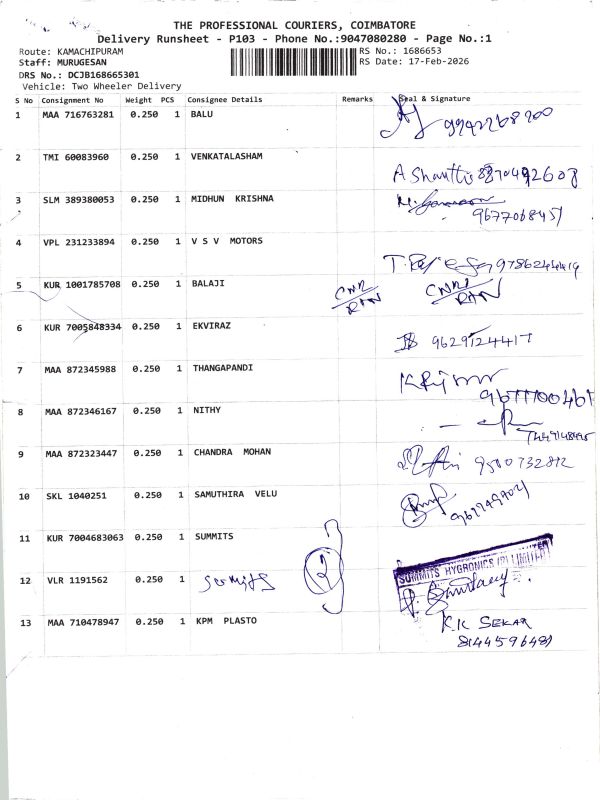 THE PROFESSIONAL COURIERS, COIMBATORE
Delivery Runsheet - P103 - Phone No.:9047080280 - Page No.:1
Route: KAMACHIPURAM RS No.: 1686653
Staff: MURUGESAN RS Date: 17-Feb-2026
DRS No.: DCJB168665301
Vehicle: Two Wheeler Delivery
S No Consignment No Weight PCS Consignee Details Remarks Seal & Signature
1 MAA 716763281 0.250 1 BALU 9942268200
2 TMI 60083960 0.250 1 VENKATALASHAM
A Shanthi 8870492608
3 SLM 389380053 0.250 1 MIDHUN KRISHNA
9677068451
4 VPL 231233894 0.250 1 V S V MOTORS
9786244419
5 KUR 1001785708 0.250 1 BALAJI
6 KUR 7005848334 0.250 1 EKVIRAZ
9629124417
7 MAA 872345988 0.250 1 THANGAPANDI
9677700461
8 MAA 872346167 0.250 1 NITHY
9 MAA 872323447 0.250 1 CHANDRA MOHAN
9500732812
10 SKL 1040251 0.250 1 SAMUTHIRA VELU
11 KUR 7004683063 0.250 1 SUMMITS
SUMMITS HYGRONICS (P) LIMITED
12 VLR 1191562 0.250 1 Summits 2
13 MAA 710478947 0.250 1 KPM PLASTO K.K SEKAR
8144596481